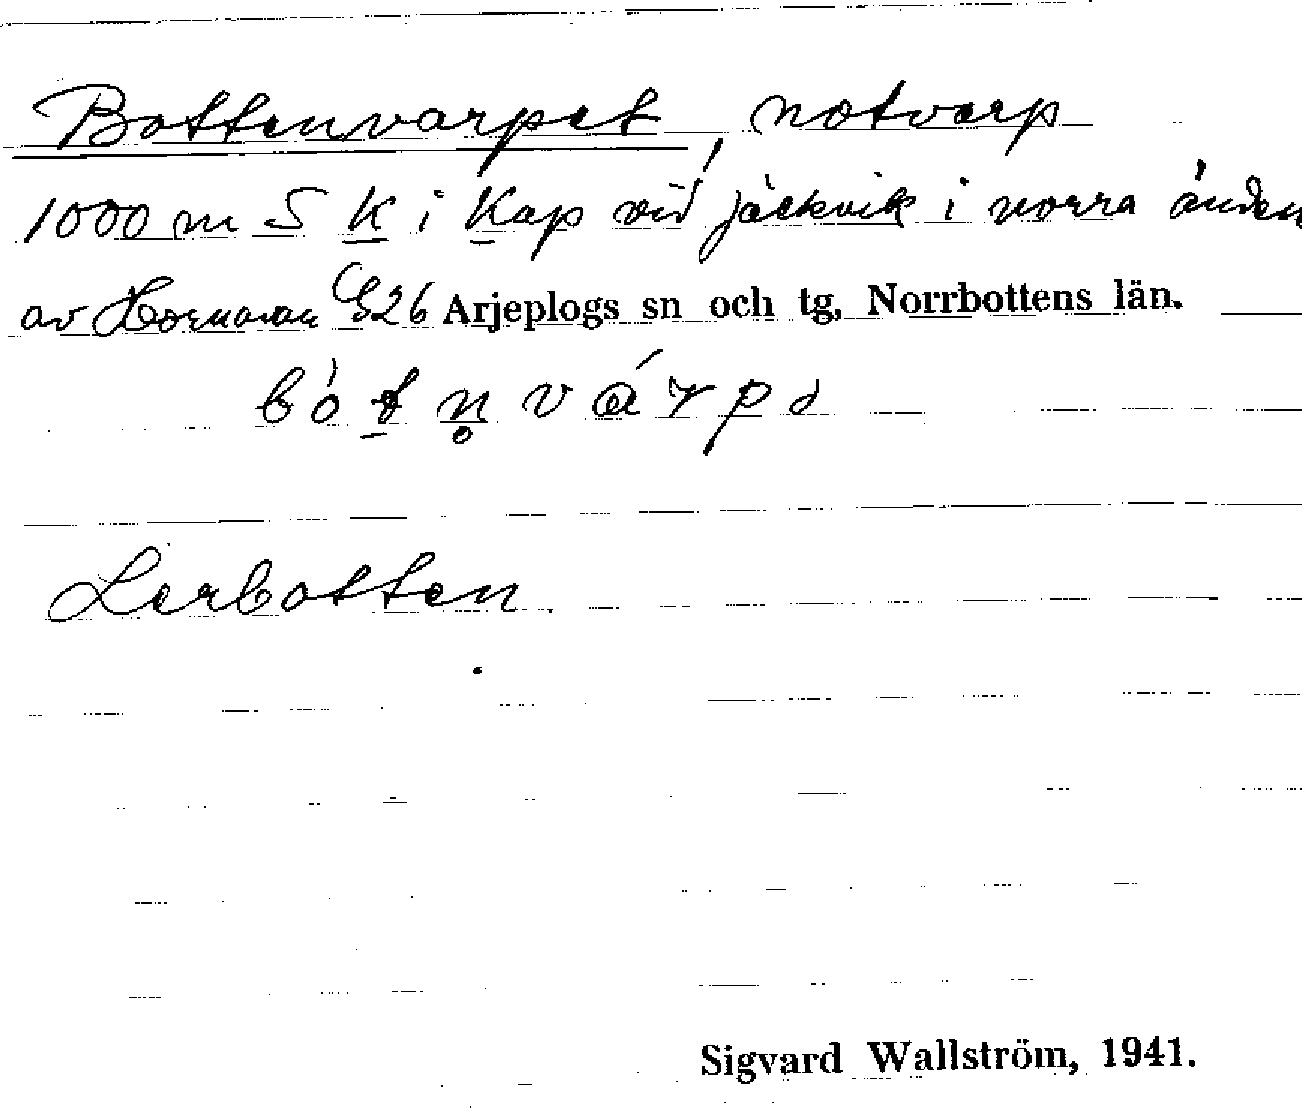 Bottenvarpet, notvarp
1000 m S K i Kap vid Jäckvik i norra änden
av Hornavan E26 Arjeplogs sn och tg, Norrbottens län.
Lerbotten
Sigvard Wallström, 1941.